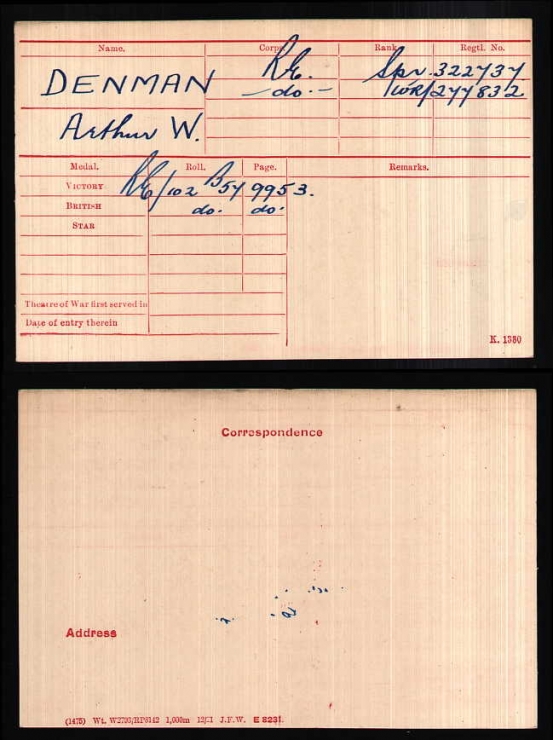 Name. Corps. Rank. Regtl. No.
DENMAN R.E. Spr. 322737
— do. — WR/277832
Arthur W.
Medal. Roll. Page. Remarks.
VICTORY RE/102 B57 9953.
BRITISH do. do.
STAR
Theatre of War first served in
Date of entry therein
K. 1380
Correspondence
Address
(1475) Wt. 1,000m 12/21 J.F.W. E 8231.